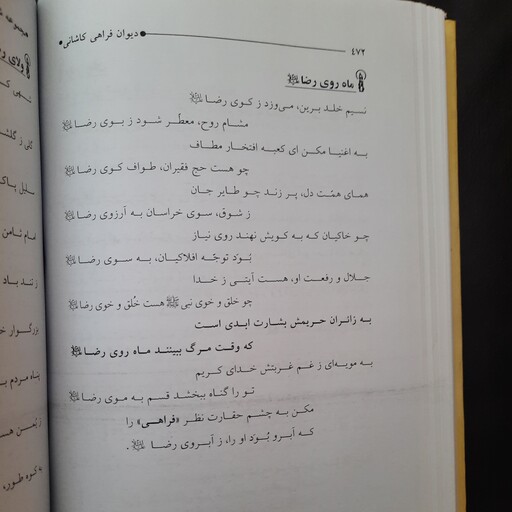 دیوان فراهی کاشانی
۴۷۲
ماه روی رضا
نسیم خلد برین، می‌وزد ز کوی رضا
مشام روح، معطّر شود ز بوی رضا
به اغنیا مکن ای کعبه افتخار مطاف
چو هست حج فقیران، طواف کوی رضا
همای همّت دل، پر زند چو طایر جان
ز شوق، سوی خراسان به آرزوی رضا
چو خاکیان که به کویش نهند روی نیاز
بُوَد توجّه افلاکیان، به سوی رضا
جلال و رفعت او، هست آیتی ز خدا
چو خلق و خوی نبی ﷺ هست خُلق و خوی رضا
به زائران حریمش بشارت ابدی است
که وقت مرگ ببینند ماه روی رضا
به مویه‌ای ز غم غربتش خدای کریم
تو را گناه ببخشد قسم به موی رضا
مکن به چشم حقارت نظر «فراهی» را
که آبرو بُوَد او را، ز آبروی رضا.
ولای
گلی ز گلش
سلیل پاک
امام ثامن
زنند باد
بزرگوار خ
پناه مردم
ز یُمن هس
«کوه طور»